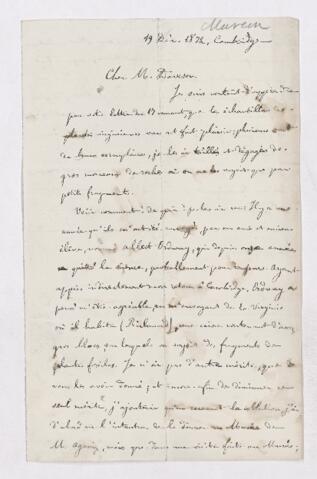 Marcou
19 Déc. 1874, Cambridge
Cher M. Dawson.
Je suis content d'apprendre
par votre lettre du 13 courant, que les échantillons de
plantes virginiennes vous ont fait plaisir; plusieurs sont
de bons exemplaires, je les ai taillés et dégagés de
gros morceaux de roches où on ne les voyait que par
petits fragments.
Voici comment je les ai eus. Il y a une
année qu'ils m'ont été envoyés par un ami et ancien
élève, nommé Albert Ordway, qui depuis onze années
a quitté la science, probablement pour toujours. Ayant
appris indirectement mon retour à Cambridge, Ordway a
pensé m'être agréable, en m'envoyant de la Virginie
où il habite (Richmond), une caisse contenant deux
gros blocs sur lesquels on voyait des fragments de
plantes fossiles. Je n'ai pas d'autre mérite, que de
vous les avoir donné; et encore afin de diminuer ce
seul mérite, j'ajouterai que recevant la collection j'ai
d'abord eu l'intention de la donner au Musée de
M. Agassiz, mais que dans une visite faite au Musée,